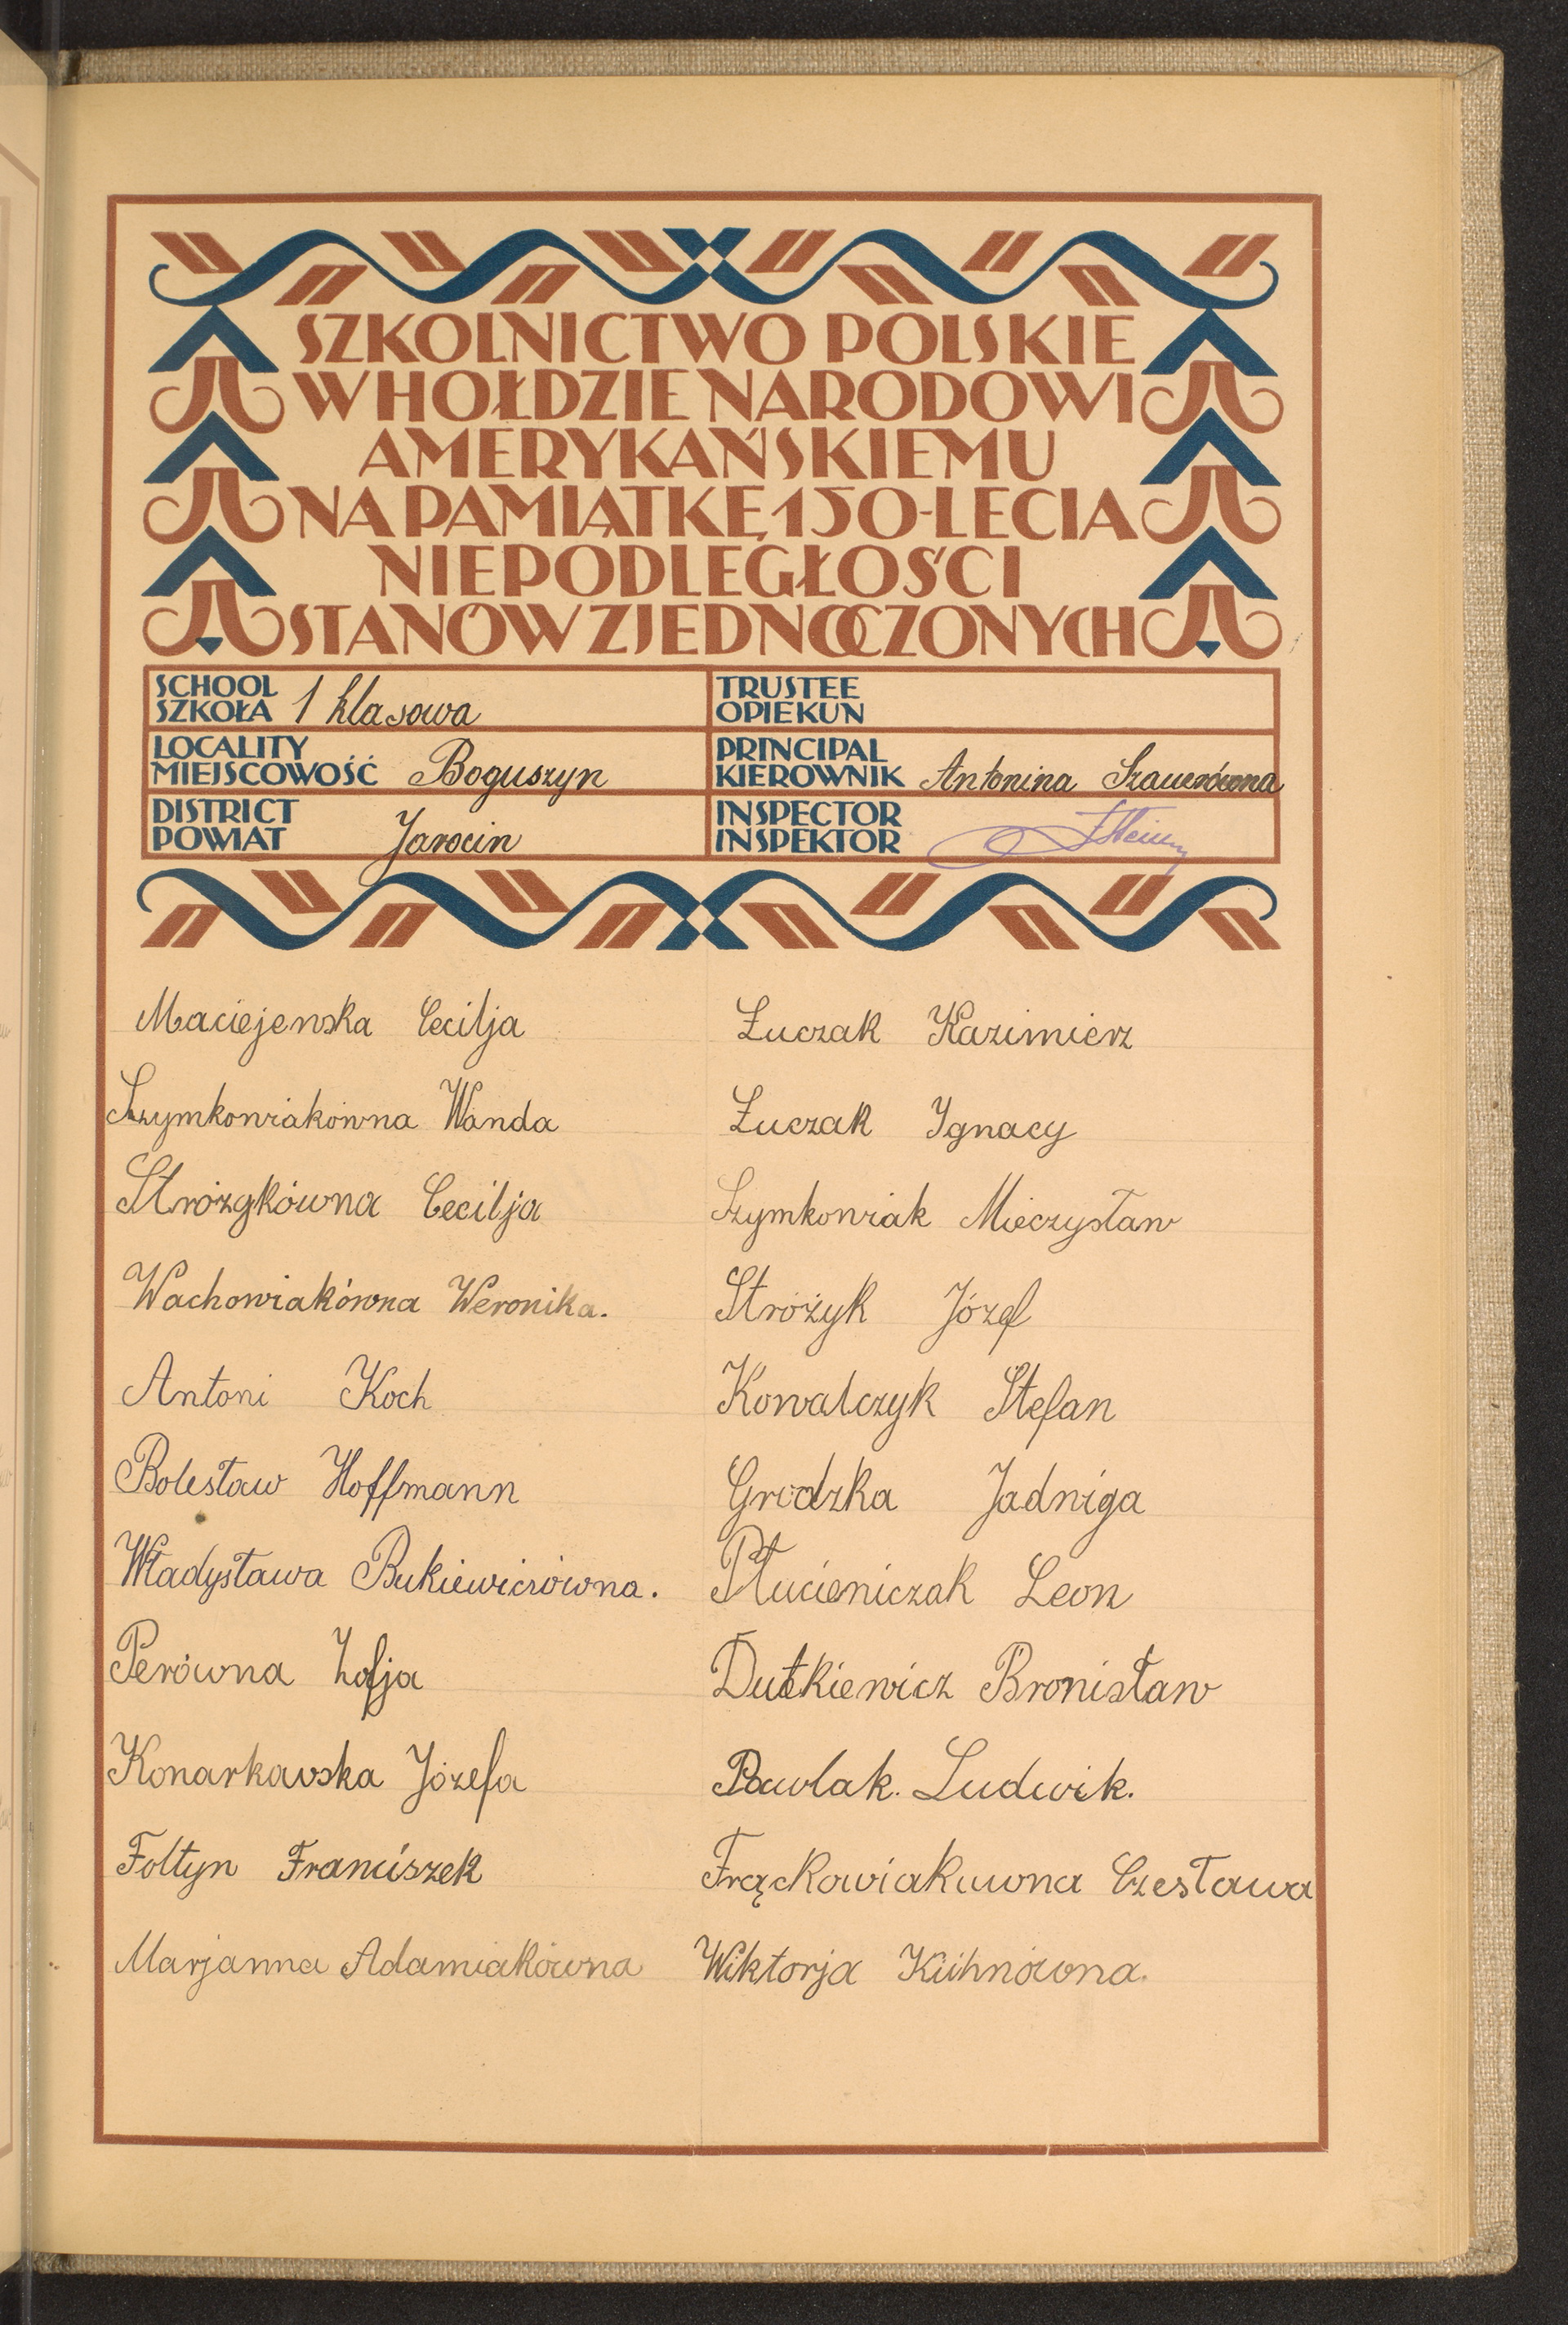 SZKOLNICTWO POLSKIE
W HOŁDZIE NARODOWI
AMERYKAŃSKIEMU
NA PAMIĄTKĘ 150-LECIA
NIEPODLEGŁOŚCI
STANÓW ZJEDNOCZONYCH
SCHOOL
SZKOŁA 1 klasowa
TRUSTEE
OPIEKUN
LOCALITY
MIEJSCOWOŚĆ Boguszyn
PRINCIPAL
KIEROWNIK Antonina
DISTRICT
POWIAT Jarocin
INSPECTOR
INSPEKTOR
Maciejewska Cecilja
Szymkowiakówna Wanda
Stróżykówna Cecilja
Wachowiakówna Weronika.
Antoni Koch
Bolesław Hoffmann
Władysława Bukiewiczówna.
Perówna Zofja
Konarkawska Józefa
Foltyn Franciszek
Marjanna Adamiakówna
Łuczak Kazimierz
Łuczak Ignacy
Szymkowiak Mieczysław
Stróżyk Józef
Kowalczyk Stefan
Grodzka Jadwiga
Płucieniczak Leon
Dutkiewicz Bronisław
Pawlak. Ludwik.
Frąckowiakuwna Czesława
Wiktorja Kühnówna.